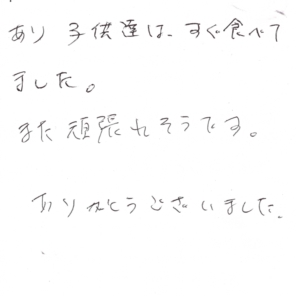 あり 子供達は、すぐ食べて
ました。
また頑張れそうです。
ありがとうございました.